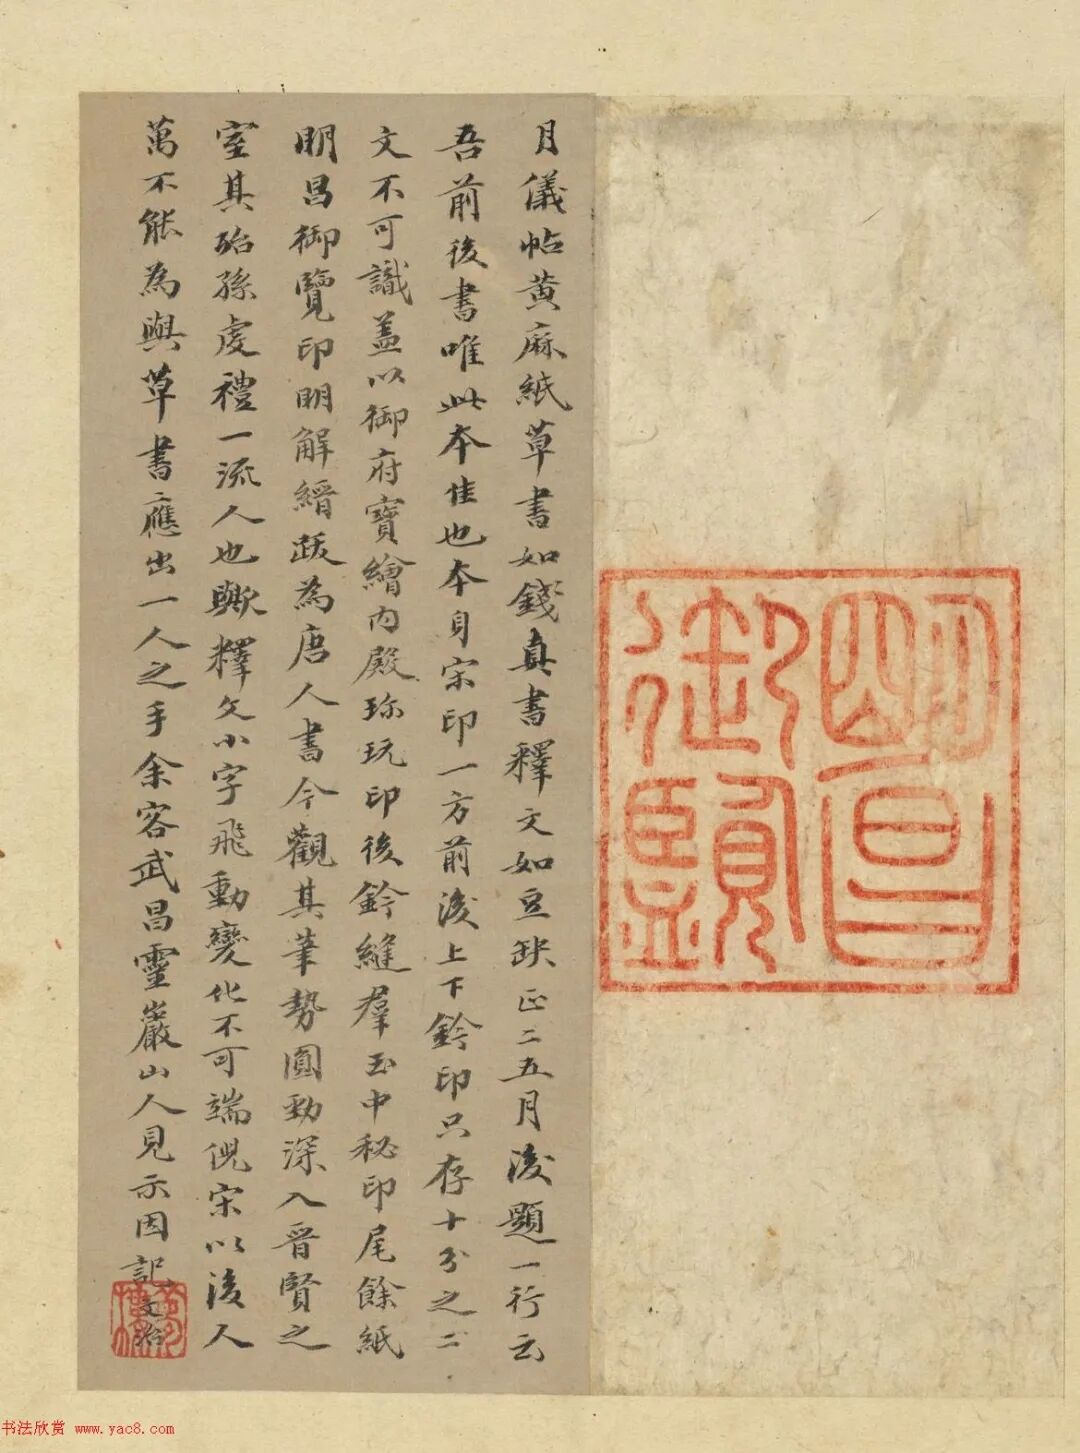 明昌
御覽
月儀帖黄麻紙草書如錢真書釋文如豆缺正二五月後題一行云
吾前後書唯此本佳也本身宋印一方前後上下鈐印只存十分之二
文不可識蓋以御府寶繪內殿珎玩印後鈐縫羣玉中秘印尾餘紙
明昌御覽印明解縉跋為唐人書今觀其筆勢圓勁深入晋賢之
室其殆孫虔禮一流人也歟釋文小字飛動變化不可端倪宋以後人
萬不能為與草書應出一人之手余客武昌靈巖山人見示因記
文治
书法欣赏 www.yac8.com